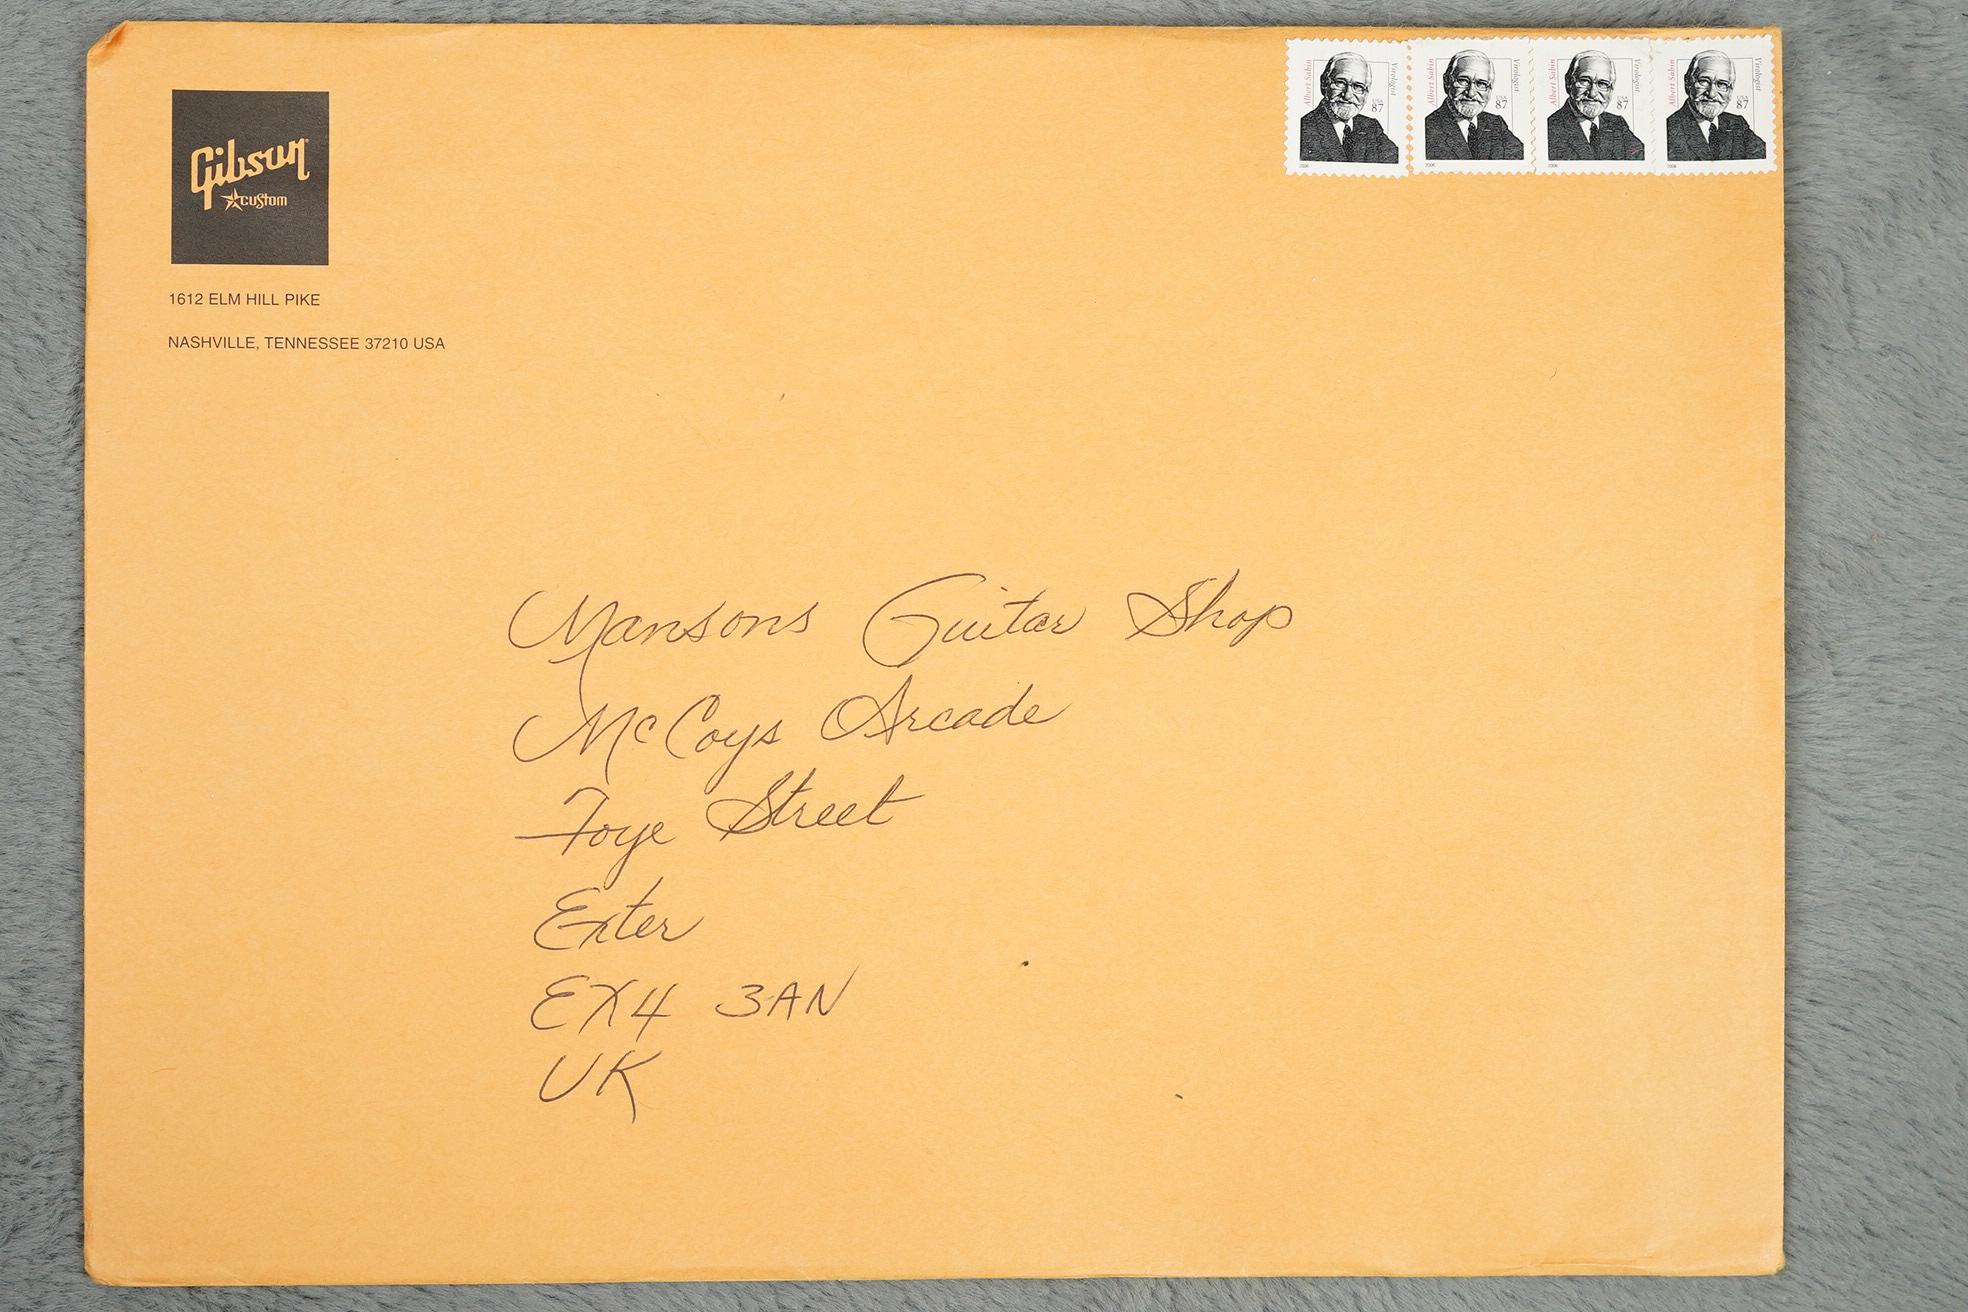 Gibson
custom
1612 ELM HILL PIKE
NASHVILLE, TENNESSEE 37210 USA
Albert Sabin Virologist USA 87 2006
Albert Sabin Virologist USA 87 2006
Albert Sabin Virologist USA 87 2006
Albert Sabin Virologist USA 87 2006
Mansons Guitar Shop
McCoys Arcade
Foye Street
Exter
EX4 3AN
UK